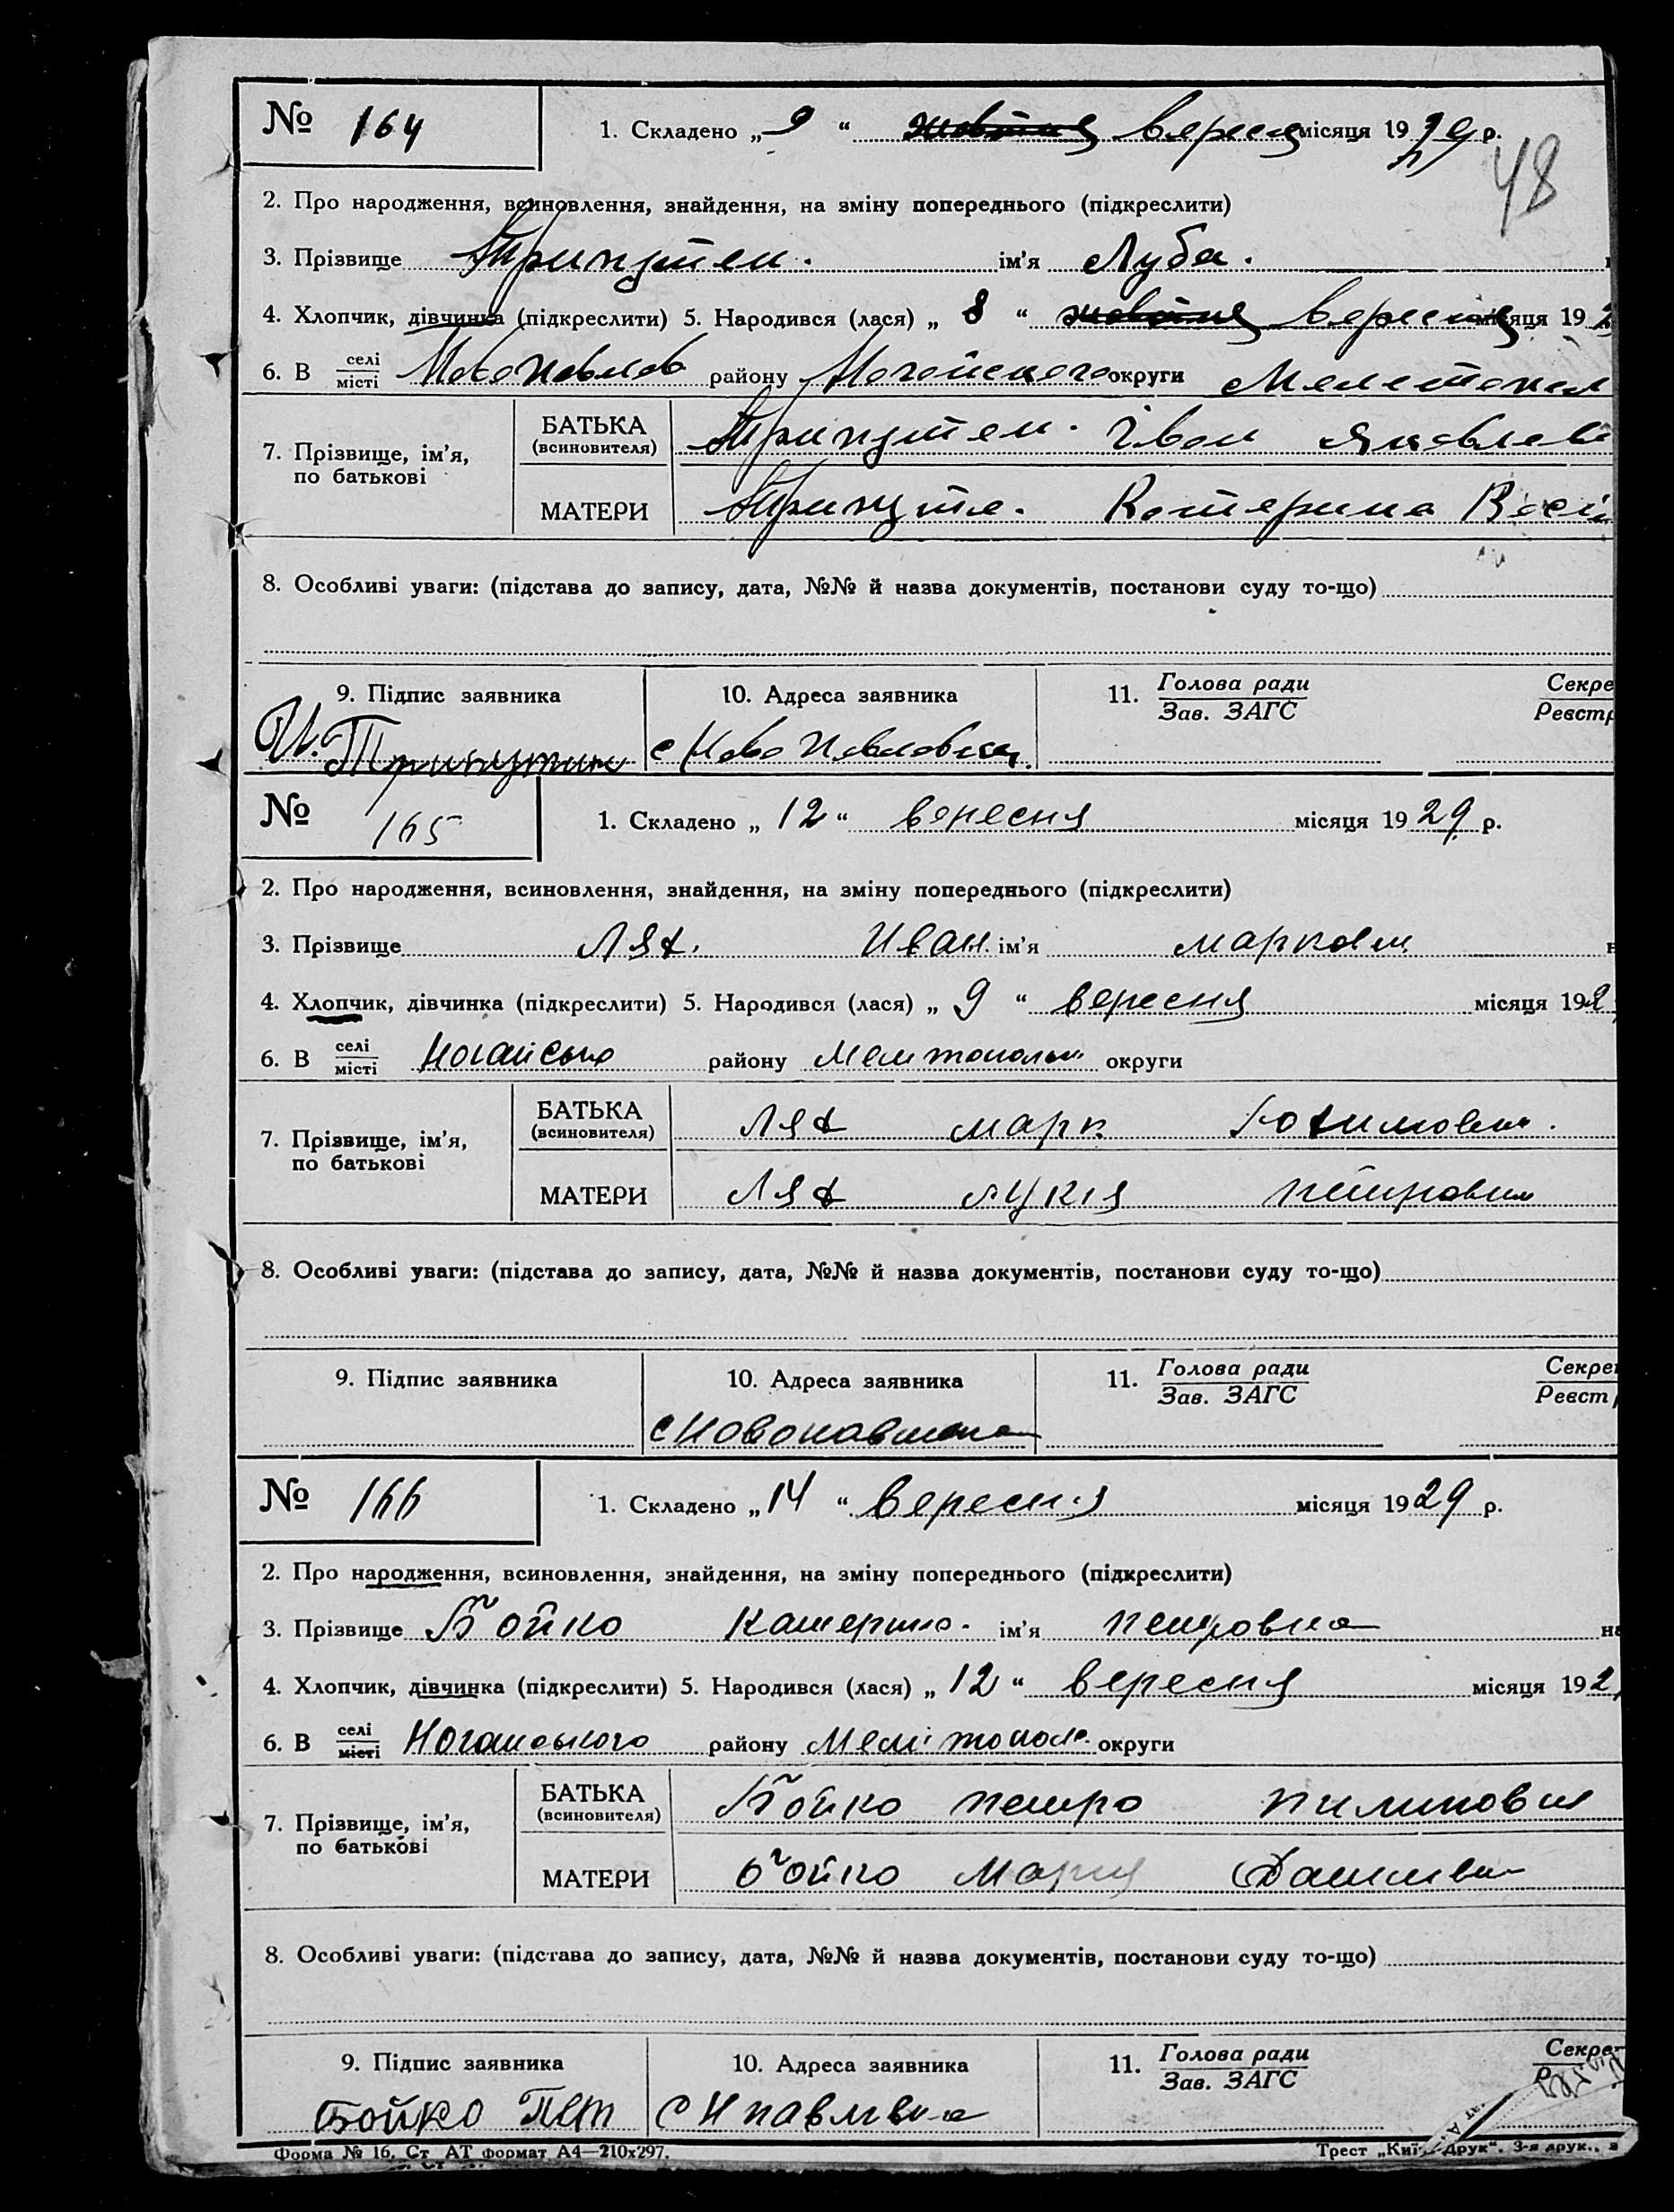 № 164
1. Складено „ 9 “ вересня місяця 19 29 р.
48
2. Про народження, всиновлення, знайдення, на зміну попереднього (підкреслити)
3. Прізвище Трипутен. ім'я Луба.
4. Хлопчик, дівчинка (підкреслити) 5. Народився (лася) „ 8 “ вересня місяця 19 2
6. В селі/місті Новопавлов району Ногайского округи Мелетопол
7. Прізвище, ім'я, по батькові
БАТЬКА (всиновителя) Трипутен. Іван Яковлев
МАТЕРИ Трипуте. Катерина Васи
8. Особливі уваги: (підстава до запису, дата, №№ й назва документів, постанови суду то-що)
9. Підпис заявника
10. Адреса заявника
11. Голова ради
Зав. ЗАГС
Секре
Реєстр
И. Трипутин
с Ново Павловки.
№ 165
1. Складено „ 12 “ вересня місяця 19 29 р.
2. Про народження, всиновлення, знайдення, на зміну попереднього (підкреслити)
3. Прізвище Лях. Иван. ім'я марков
4. Хлопчик, дівчинка (підкреслити) 5. Народився (лася) „ 9 “ вересня місяця 19 2
6. В селі/місті Ногайсько району округи
7. Прізвище, ім'я, по батькові
БАТЬКА (всиновителя) Лях марк
МАТЕРИ Лях лукія петровн
8. Особливі уваги: (підстава до запису, дата, №№ й назва документів, постанови суду то-що)
9. Підпис заявника
10. Адреса заявника
11. Голова ради
Зав. ЗАГС
Секрет
Реєст
с
№ 166
1. Складено „ 14 “ вересня місяця 19 29 р.
2. Про народження, всиновлення, знайдення, на зміну попереднього (підкреслити)
3. Прізвище Бойко Катерина. ім'я петровна на
4. Хлопчик, дівчинка (підкреслити) 5. Народився (лася) „ 12 “ вересня місяця 19 2
6. В селі/місті Ногайського району Мелітополь округи
7. Прізвище, ім'я, по батькові
БАТЬКА (всиновителя) Бойко петро пилипович
МАТЕРИ Бойко Мария
8. Особливі уваги: (підстава до запису, дата, №№ й назва документів, постанови суду то-що)
9. Підпис заявника
10. Адреса заявника
11. Голова ради
Зав. ЗАГС
Секре
Бойко Пет
с Н павлвка
Форма № 16. Ст АТ формат А4—210х297.
Трест „Киї Друк“. 3-я друк.,